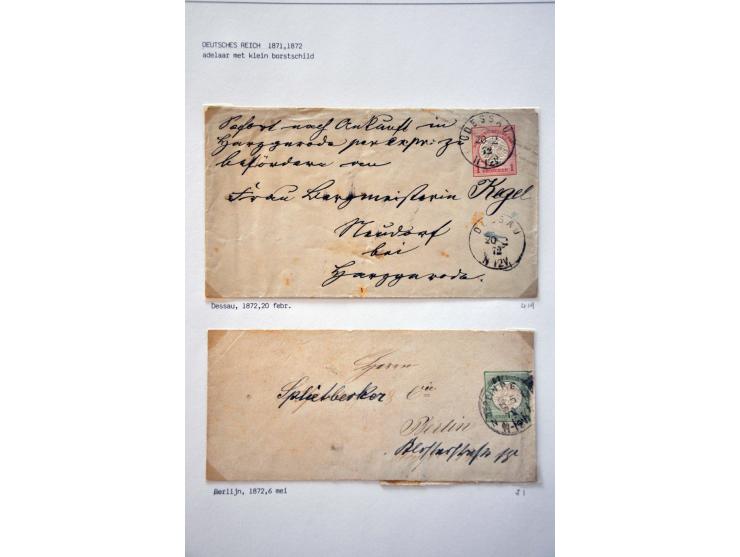 DEUTSCHES REICH 1871,1872
adelaar met klein borstschild
Sofort nach Ankunft in
Harzgerode per Expr: zu
befördern an
Frau Bergmeisterin Kegel
Neudorf
bei
Harzgerode.
DESSAU
20 2
72
1
1
DESSAU
20 2
72
N 12V.
Dessau, 1872,20 febr.
Herrn
Splietberker Cie
Berlin
Klosterstraße
Berlijn, 1872,6 mei